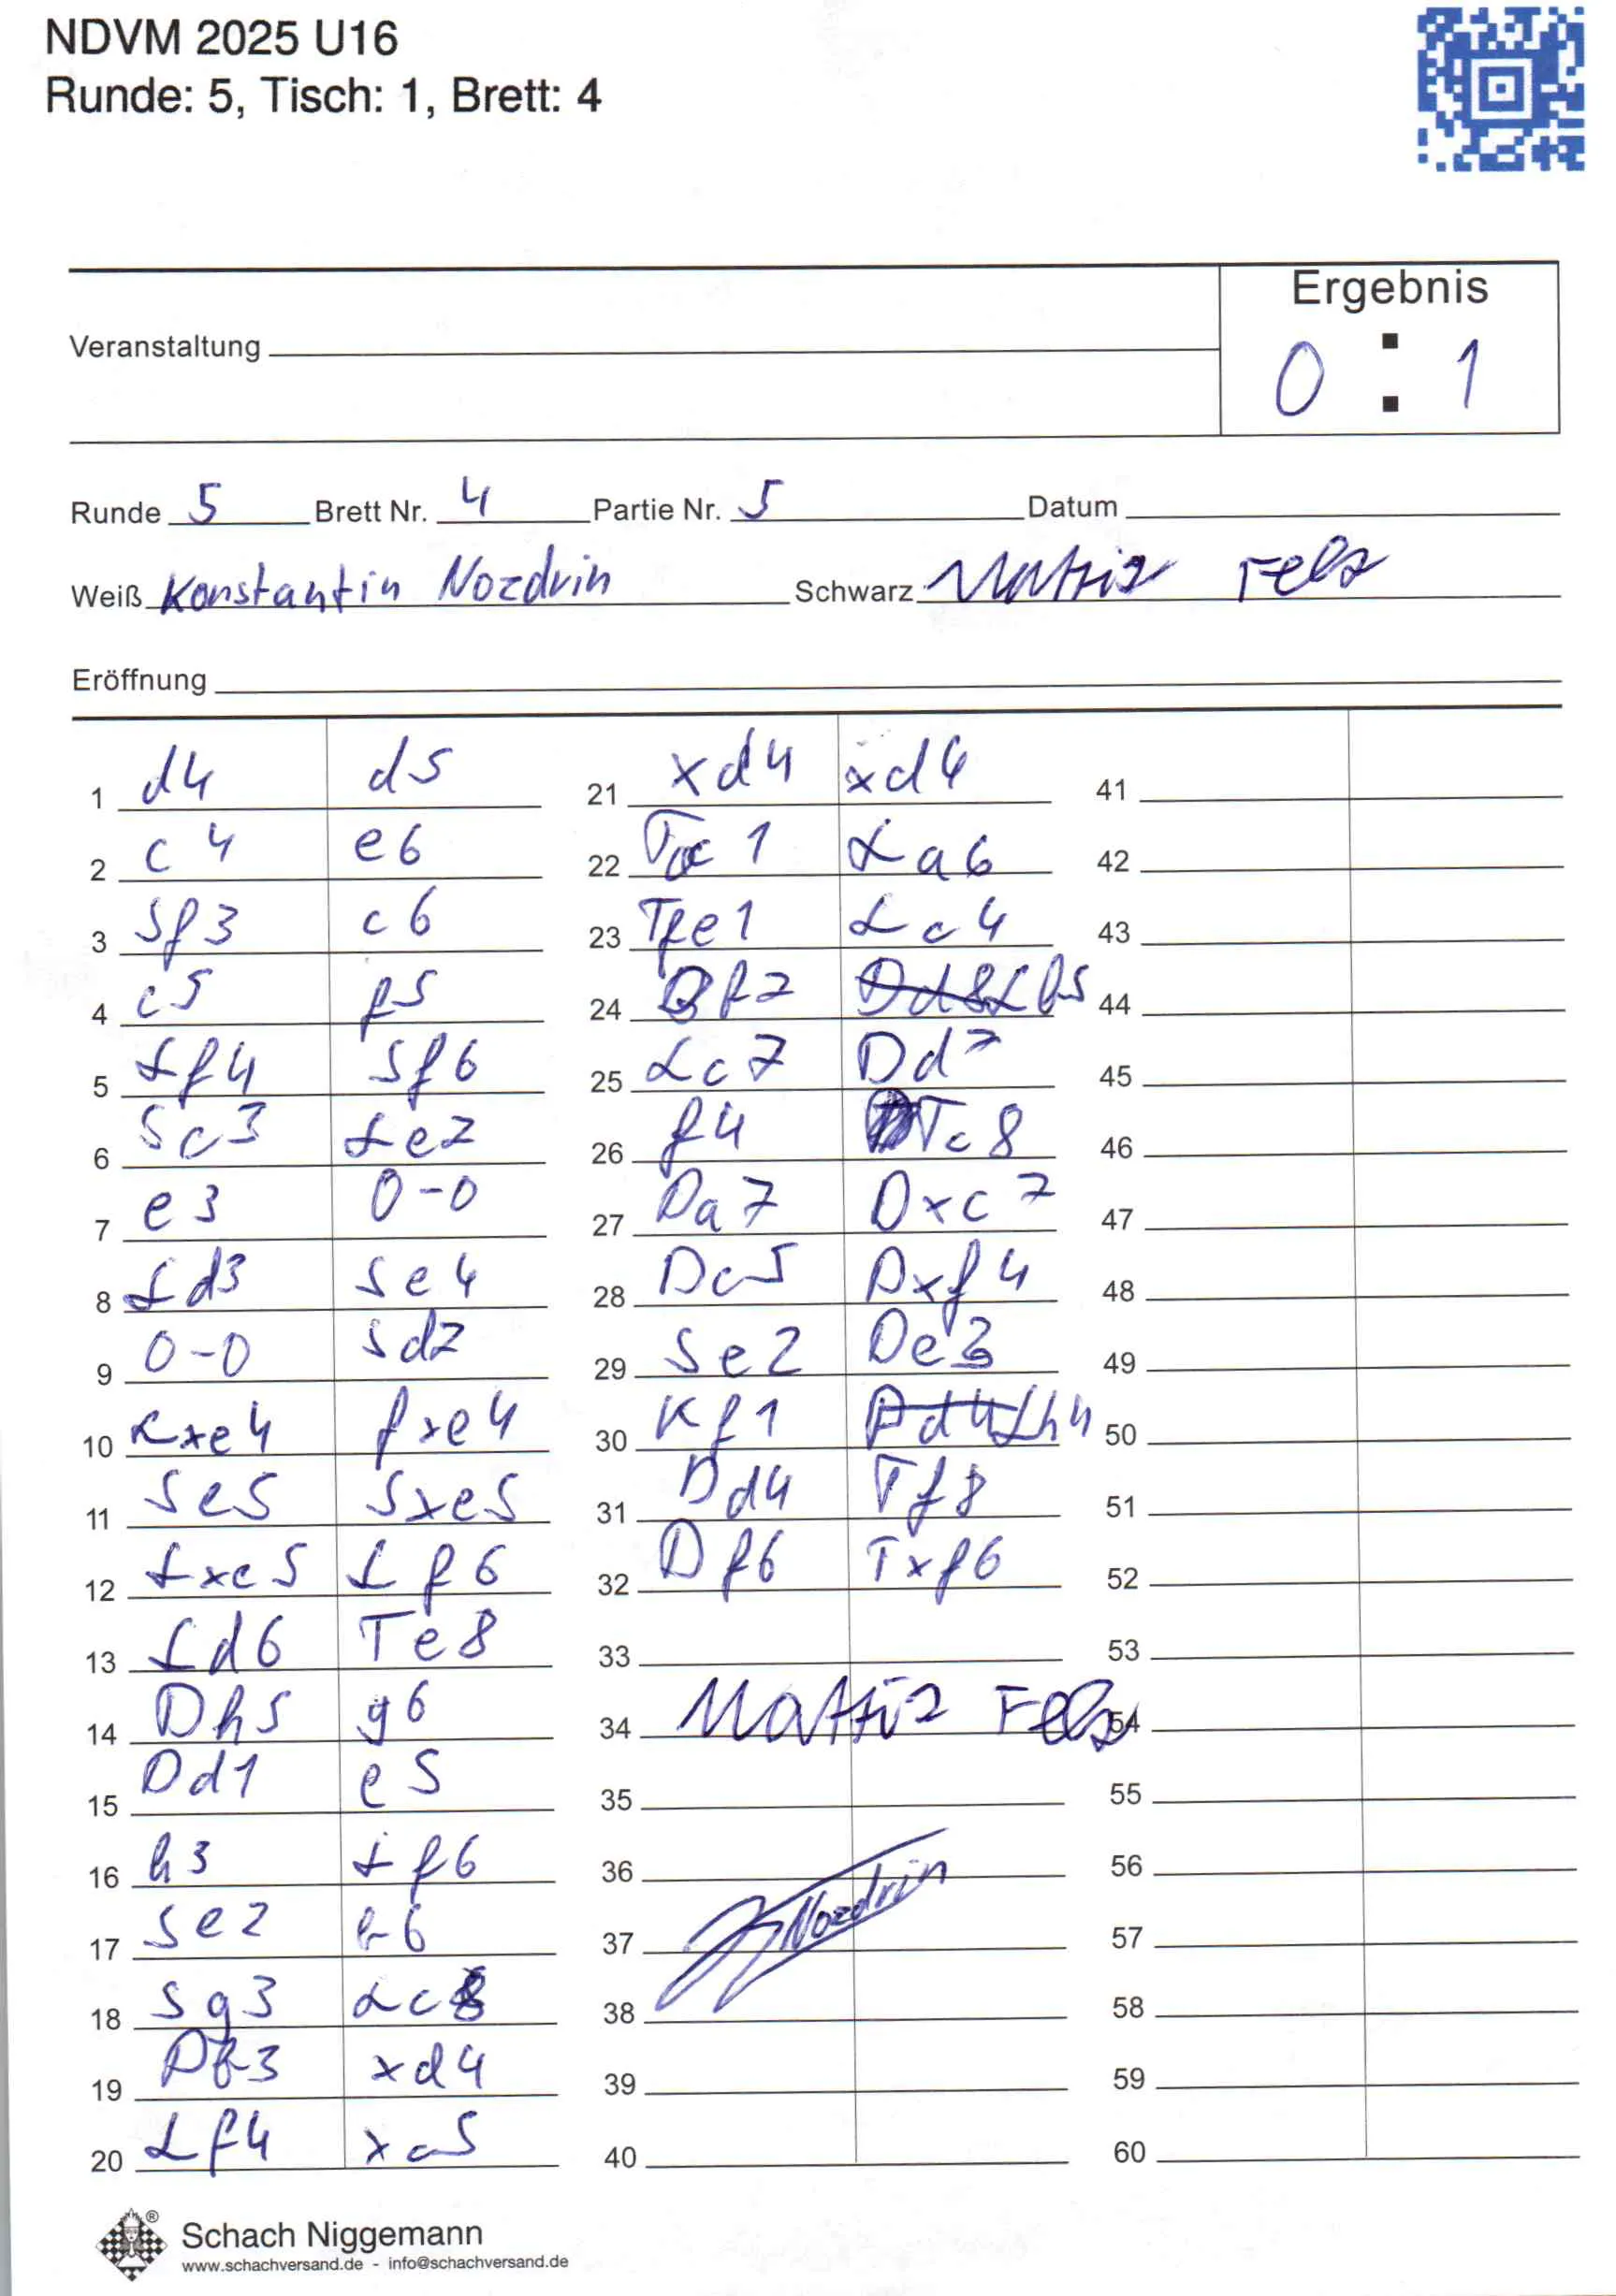 NDVM 2025 U16
Runde: 5, Tisch: 1, Brett: 4
Ergebnis
0 : 1
Veranstaltung
Runde 5 Brett Nr. 4 Partie Nr. 5 Datum
Weiß Konstantin Nozdrin Schwarz Fels
Eröffnung
1 d4 d5
2 c4 e6
3 Sf3 c6
4 c5 f5
5 Lf4 Sf6
6 Sc3 Le7
7 e3 0-0
8 Ld3 Se4
9 0-0 Sd7
10 Lxe4 fxe4
11 Se5 Sxe5
12 Lxe5 Lf6
13 Ld6 Te8
14 Dh5 g6
15 Dd1 e5
16 h3 Lf6
17 Se2 b6
18 Sg3 Lc8
19 Db3 xd4
20 Lf4 xc5
21 xd4 xd4
22 Tac1 La6
23 Tfe1 Lc4
24 Lb5
25 Lc7 Dd7
26 f4 Tc8
27 Da7 Dxc7
28 Dc5 Dxf4
29 Se2 De3
30 Kf1 Lh4
31 Dd4 Tf8
32 Df6 Txf6
33
34 Mattis Fels
35
36
37 Nozdrin
38
39
40
41
42
43
44
45
46
47
48
49
50
51
52
53
54
55
56
57
58
59
60
Schach Niggemann
www.schachversand.de - info@schachversand.de